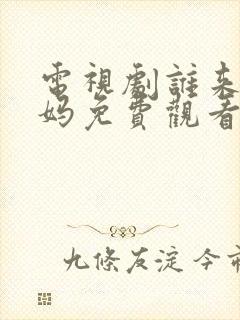 電視劇誰來
妈免費觀看
九條友淀今市